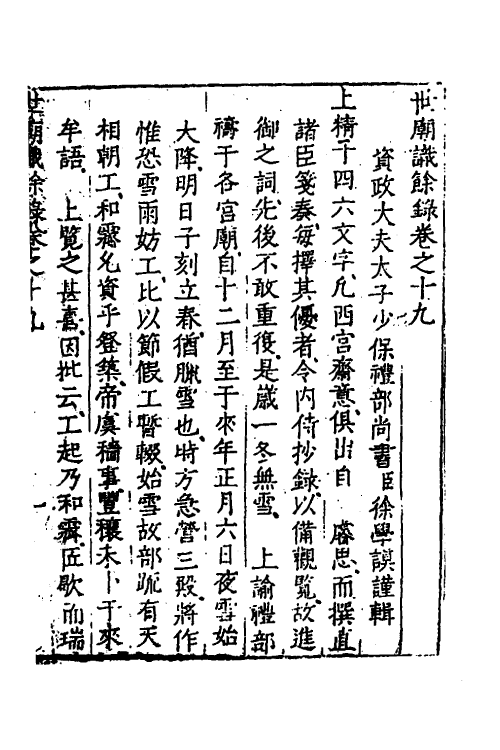 世廟識餘錄卷之十九
資政大夫太子少保禮部尚書臣徐學謨謹輯
上精于四六文字凡西宮齋意俱出自　睿思而撰直
諸臣箋奏每擇其優者令內侍抄錄以備觀覽故進
御之詞先後不敢重復是歲一冬無雪　上諭禮部
禱于各宮廟自十二月至于來年正月六日夜雪始
大降明日子刻立春猶臘雪也時方急營三殿將作
惟恐雪雨妨工比以節假工暫輟始雪故部疏有天
相朝工和霿允資乎登築帝虞穡事豐穰未卜于來
牟語　上覽之甚喜因批云工起乃和霽匠歇而瑞
世廟識餘錄卷之十九
一